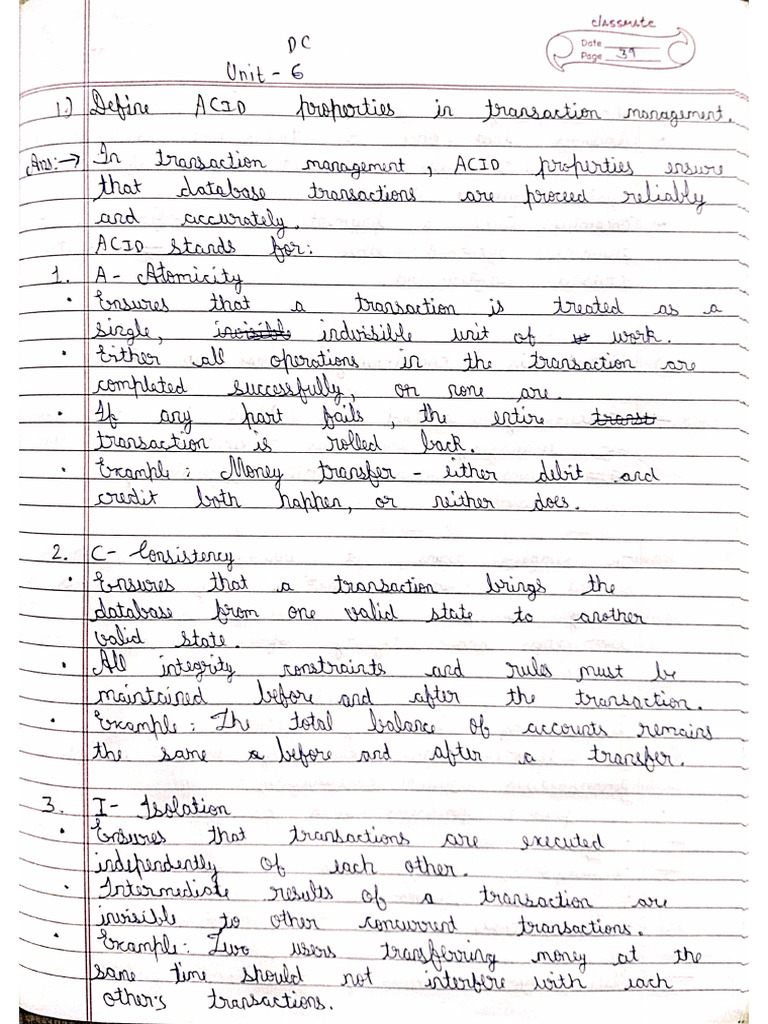 classmate
Date
Page 39
DC
Unit - 6
1.) Define ACID properties in transaction management.
Ans:→ In transaction management, ACID properties ensure
that database transactions are proceed reliably
and accurately.
ACID stands for:
1. A- Atomicity
• Ensures that a transaction is treated as a
single, indvisible unit of work.
• Either all operations in the transaction are
completed successfully, or none are.
• If any part fails, the entire
transaction is rolled back.
• Example: Money transfer - either debit and
credit both happen, or neither does.
2. C- Consistency
• Ensures that a transaction brings the
database from one valid state to another
valid state.
• All integrity constraints and rules must be
maintained before and after the transaction.
• Example: The total balance of accounts remains
the same before and after a transfer.
3. I- Isolation
• Ensures that transactions are executed
independently of each other.
• Intermediate results of a transaction are
invisible to other concurrent transactions.
• Example: Two users transferring money at the
same time should not interfere with each
other's transactions.